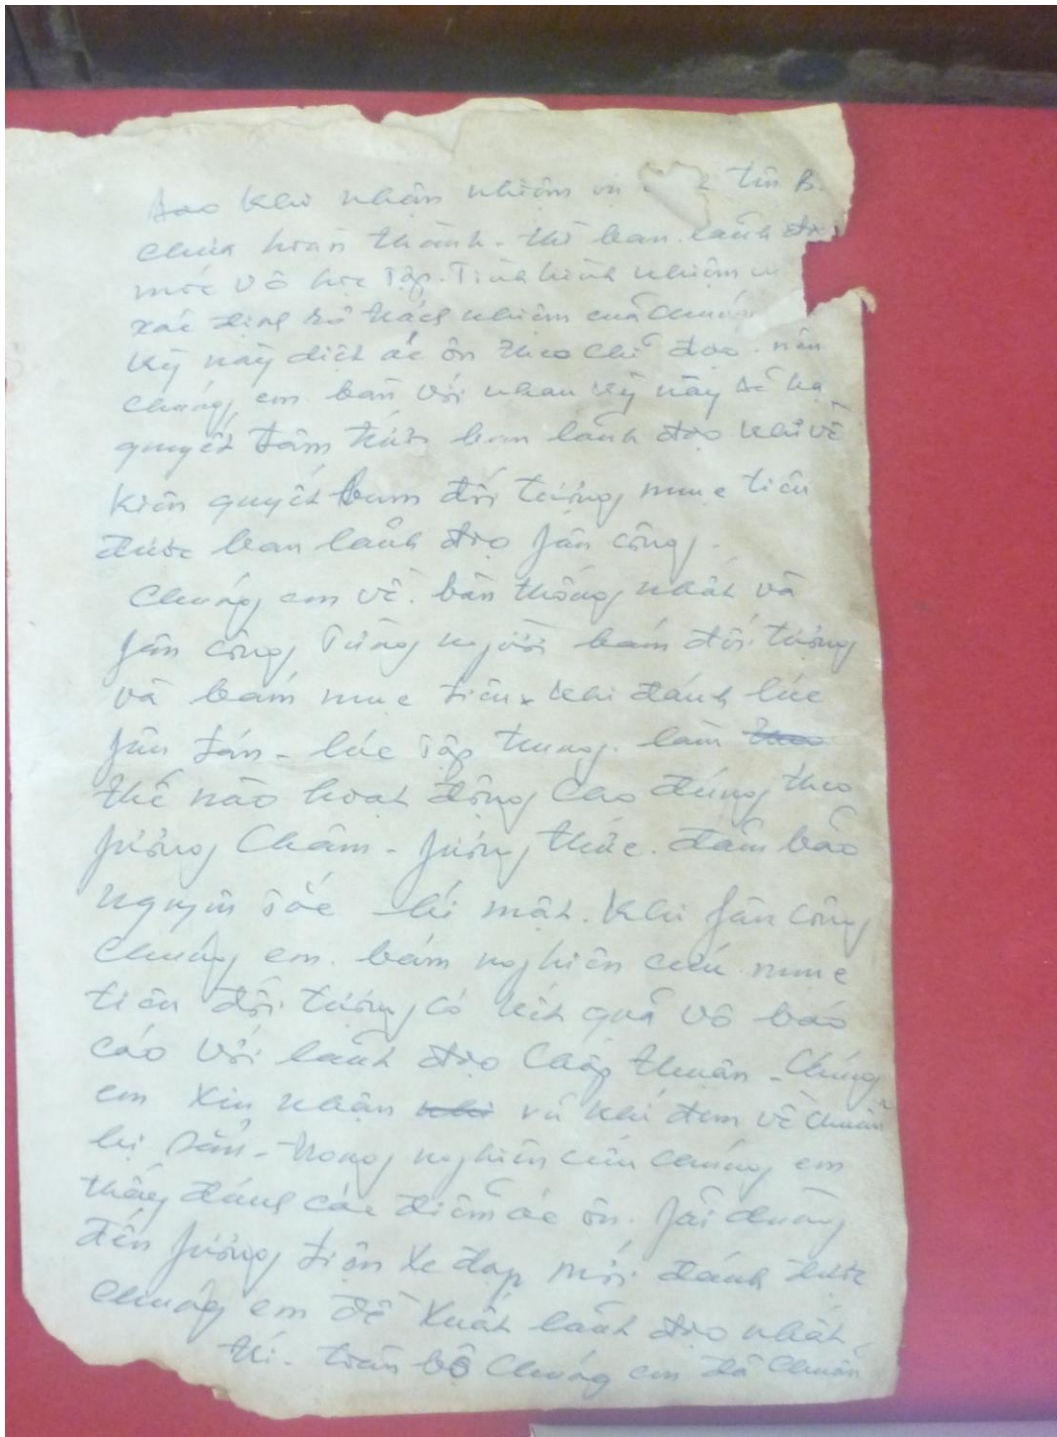 Sao khi nhận nhiệm vụ tên B.
chưa hoàn thành - thì ban lãnh đạo
móc vô học tập. Tình hình nhiệm vụ
xác định rỏ trách nhiệm của chúng
Kỳ này diệt ác ôn theo chỉ đạo. nên
chúng em bàn với nhau kỳ này sẽ hạ
quyết tâm trước ban lãnh đạo khi về
kiên quyết bám đối tượng mục tiêu
được ban lảnh đạo fân công.
Chúng em về. bàn thống nhất và
fân công từng người bám đối tượng
và bám mục tiêu khi đánh lúc
fân tán - lúc tập trung. làm
thế nào hoạt động cho đúng theo
fương châm - fương thức. đảm bảo
nguyên tắc - bí mật. Khi fân công
chúng em. bám nghiên cứu mục
tiêu đối tượng có kết quả vô báo
cáo với lảnh đạo chấp thuận - Chúng
em xin nhận vũ khí đem về chuẩn
bị sẳn - trong nghiên cứu chúng em
thấy đánh các điểm ác ôn. fải dùng
đến fương tiện xe đạp mới đánh được
chúng em đề xuất lảnh đạo nhất
trí. toàn bộ chúng em đã chuẩn